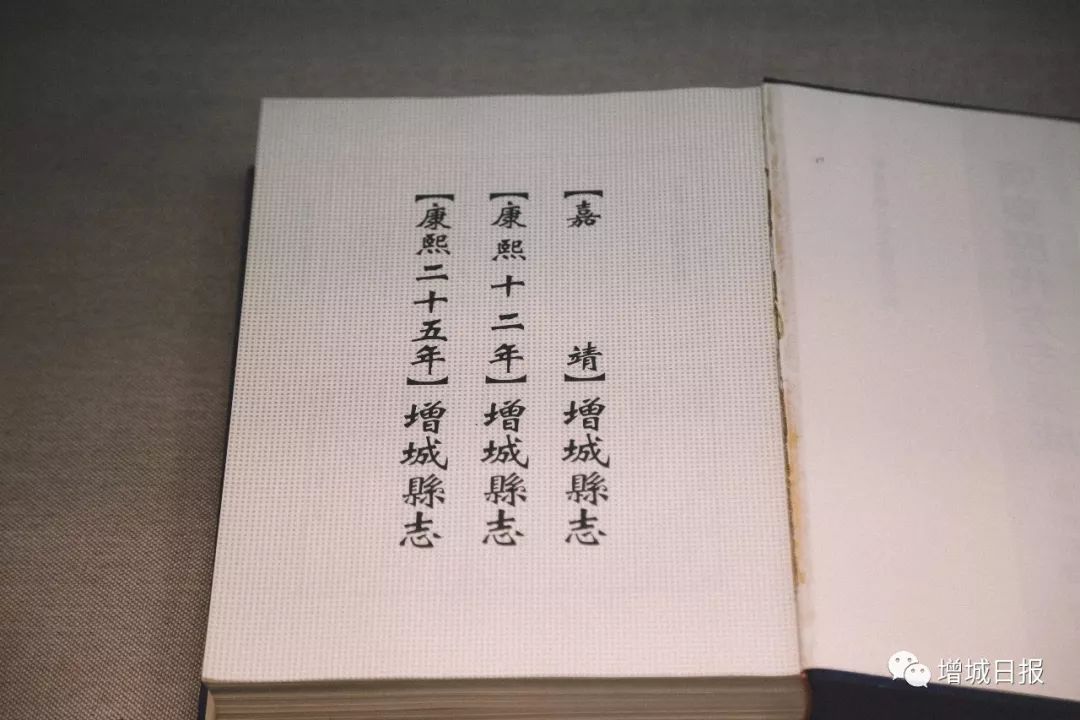 【嘉靖】增城縣志
【康熙十二年】增城縣志
【康熙二十五年】增城縣志
增城日报